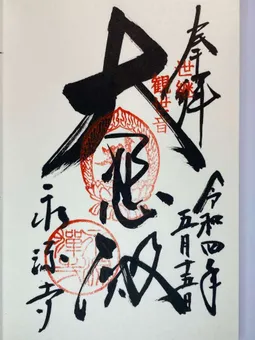 奉拝
世継
観世音
令和四年
五月十五日
大悲殿
永源寺